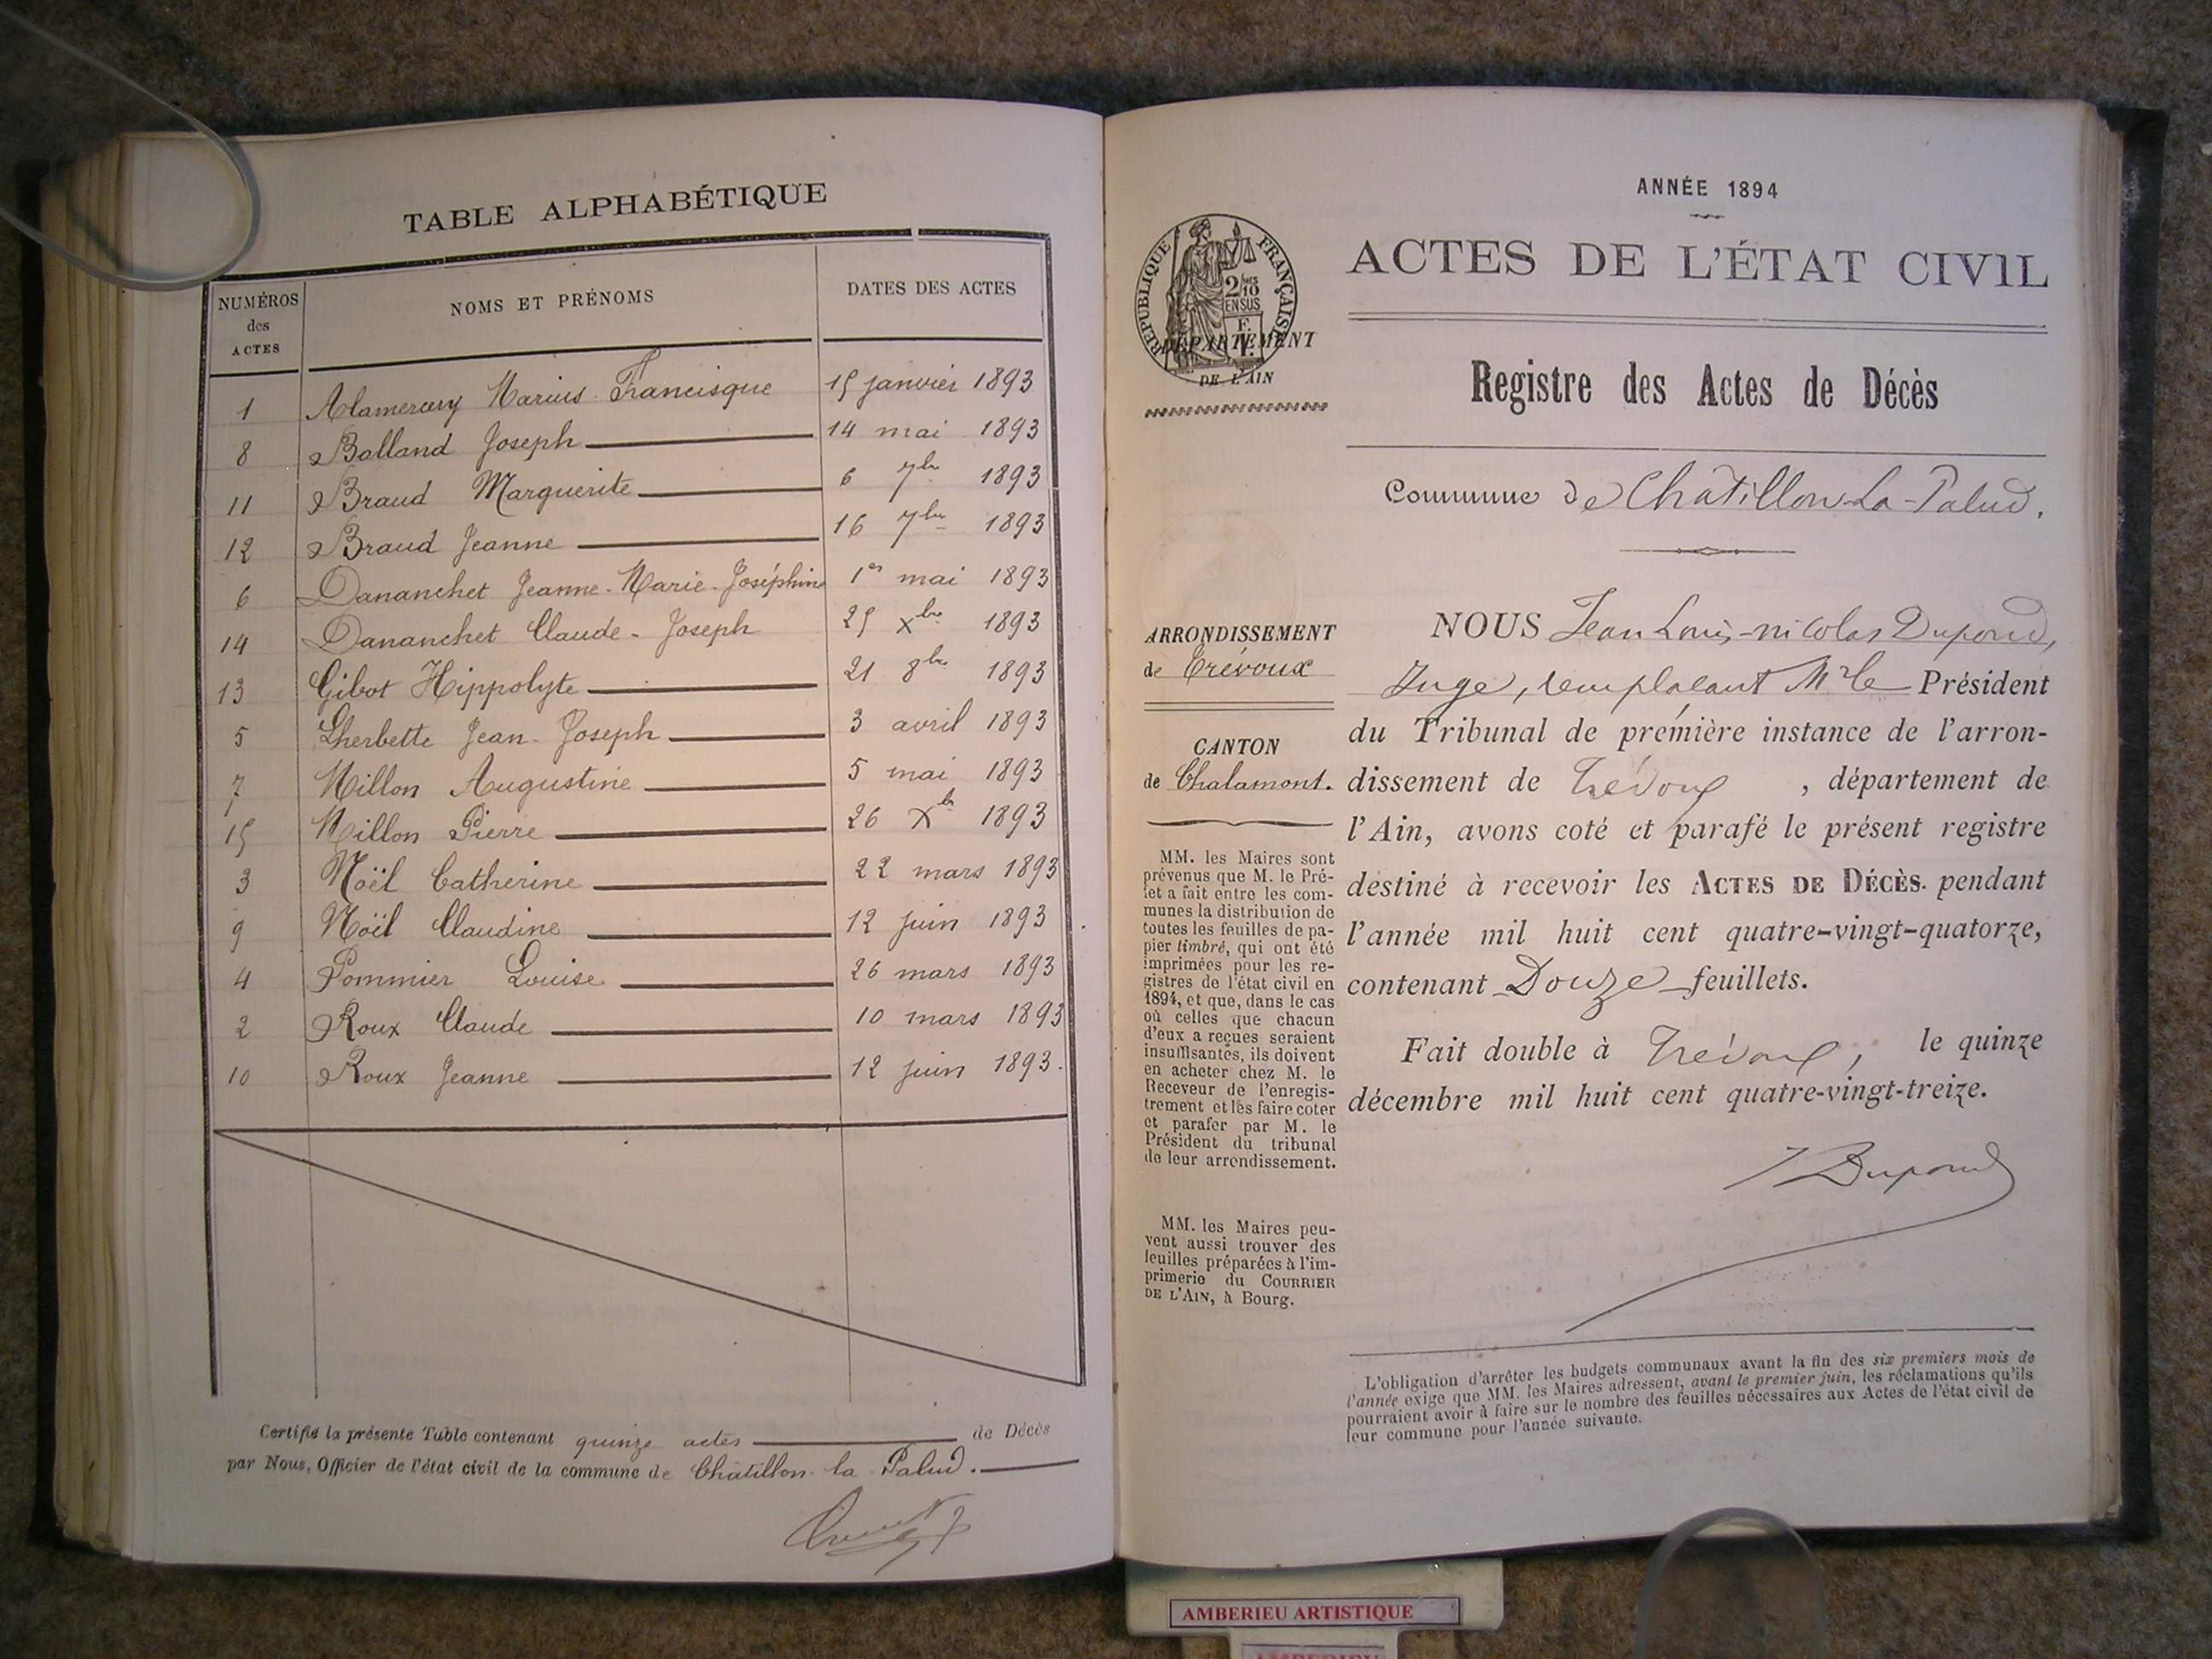 TABLE ALPHABÉTIQUE
NUMÉROS des ACTES NOMS ET PRÉNOMS DATES DES ACTES
1 Alamercery Marius-Francisque 15 janvier 1893
8 Balland Joseph 14 mai 1893
11 Braud Marguerite 6 7bre 1893
12 Braud Jeanne 16 7bre 1893
6 Dananchet Jeanne-Marie-Joséphine 1er mai 1893
14 Dananchet Claude-Joseph 25 Xbre 1893
13 Gibot Hippolyte 21 8bre 1893
5 Lherbette Jean-Joseph 3 avril 1893
7 Millon Augustine 5 mai 1893
15 Millon Pierre 26 Xbre 1893
3 Noël Catherine 22 mars 1893
9 Noël Claudine 12 juin 1893
4 Pommier Louise 26 mars 1893
2 Roux Claude 10 mars 1893
10 Roux Jeanne 12 juin 1893.
Certifié la présente Table contenant quinze actes de Décès
par Nous, Officier de l'état civil de la commune de Châtillon-la-Palud.
ANNÉE 1894
ACTES DE L'ÉTAT CIVIL
RÉPUBLIQUE FRANÇAISE
2/10
EN SUS
DÉPARTEMENT
DE L'AIN
Registre des Actes de Décès
Commune de Châtillon-La-Palud.
ARRONDISSEMENT
de Trévoux
CANTON
de Chalamont.
MM. les Maires sont
prévenus que M. le Pré-
fet a fait entre les com-
munes la distribution de
toutes les feuilles de pa-
pier timbré, qui ont été
imprimées pour les re-
gistres de l'état civil en
1894, et que, dans le cas
où celles que chacun
d'eux a reçues seraient
insuffisantes, ils doivent
en acheter chez M. le
Receveur de l'enregis-
trement et les faire coter
et parafer par M. le
Président du tribunal
de leur arrondissement.
MM. les Maires peu-
vent aussi trouver des
feuilles préparées à l'im-
primerie du COURRIER
DE L'AIN, à Bourg.
NOUS Jean Louis-nicolas Dupond,
Juge, remplaçant Mr le Président
du Tribunal de première instance de l'arron-
dissement de Trévoux, département de
l'Ain, avons coté et parafé le présent registre
destiné à recevoir les ACTES DE DÉCÈS pendant
l'année mil huit cent quatre-vingt-quatorze,
contenant Douze feuillets.
Fait double à Trévoux, le quinze
décembre mil huit cent quatre-vingt-treize.
Dupond
L'obligation d'arrêter les budgets communaux avant la fin des six premiers mois de
l'année exige que MM. les Maires adressent, avant le premier juin, les réclamations qu'ils
pourraient avoir à faire sur le nombre des feuilles nécessaires aux Actes de l'état civil de
leur commune pour l'année suivante.
AMBERIEU ARTISTIQUE
AMBERIEU